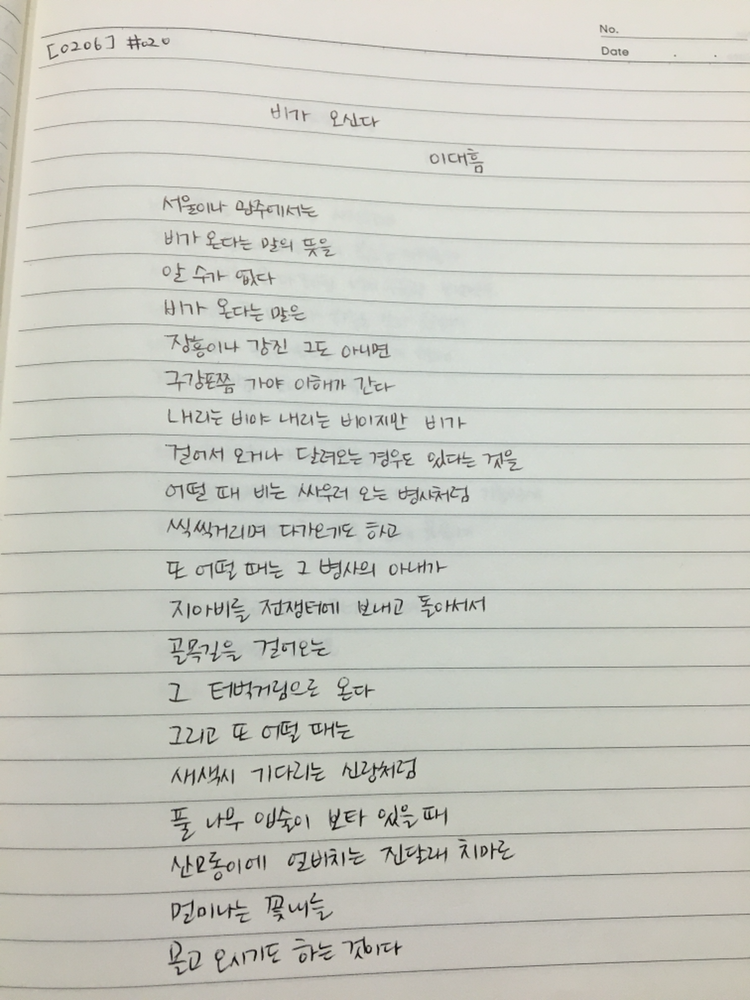 [0206] #020
No.
Date . .
비가 오신다
이대흠
서울이나 광주에서는
비가 온다는 말의 뜻을
알 수가 없다
비가 온다는 말은
장흥이나 강진 그도 아니면
구강포쯤 가야 이해가 간다
내리는 비야 내리는 비이지만 비가
걸어서 오거나 달려오는 경우도 있다는 것을
어떨 때 비는 싸우러 오는 병사처럼
씩씩거리며 다가오기도 하고
또 어떨 때는 그 병사의 아내가
지아비를 전쟁터에 보내고 돌아서서
골목길을 걸어오는
그 터벅거림으로 온다
그리고 또 어떨 때는
새색시 기다리는 신랑처럼
풀 나무 입술이 보타 있을 때
산모롱이에 얼비치는 진달래 치마로
멀미나는 꽃내를
몰고 오시기도 하는 것이다